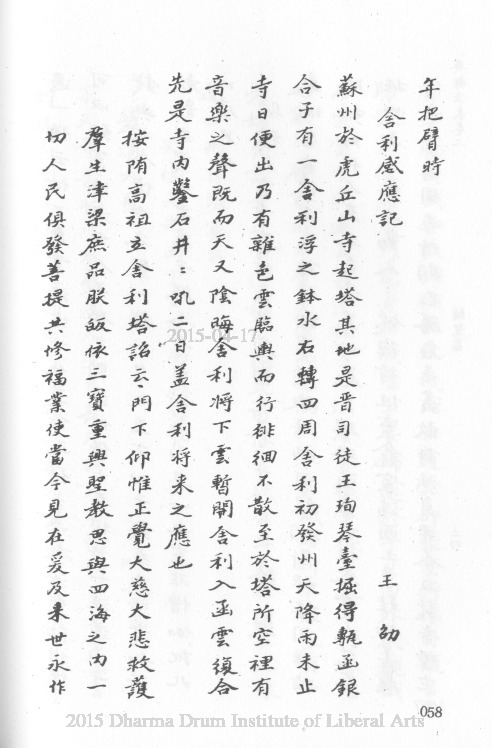 年把臂時
舍利感應記
王劭
蘇州於虎丘山寺起塔其地是晋司徒王珣琴臺掘得甎函銀
合子有一舍利浮之鉢水右轉四周舍利初發州天降雨未止
寺日便出乃有雜色雲臨輿而行徘徊不散至於塔所空裡有
音樂之聲既而天又陰晦舍利將下雲暫開舍利入函雲復合
先是寺内鑿石井〻吼二日盖舍利將来之應也
按隋高祖立舍利塔詔云門下仰惟正覺大慈大悲救護
羣生津梁庶品朕皈依三寶重興聖教思與四海之内一
切人民俱發菩提共修福業使當今見在爰及来世永作
058
2015-04-17
2015 Dharma Drum Institute of Liberal Arts